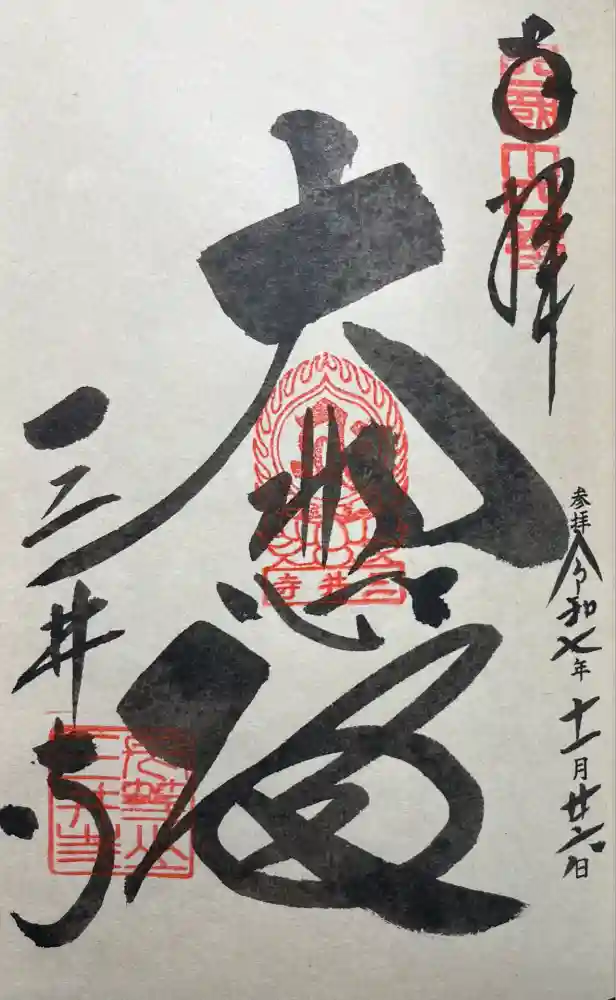 奉拝
西國十四番
参拝 令和七年十一月廿六日
大悲殿
三井寺
三井寺
長等山
三井寺